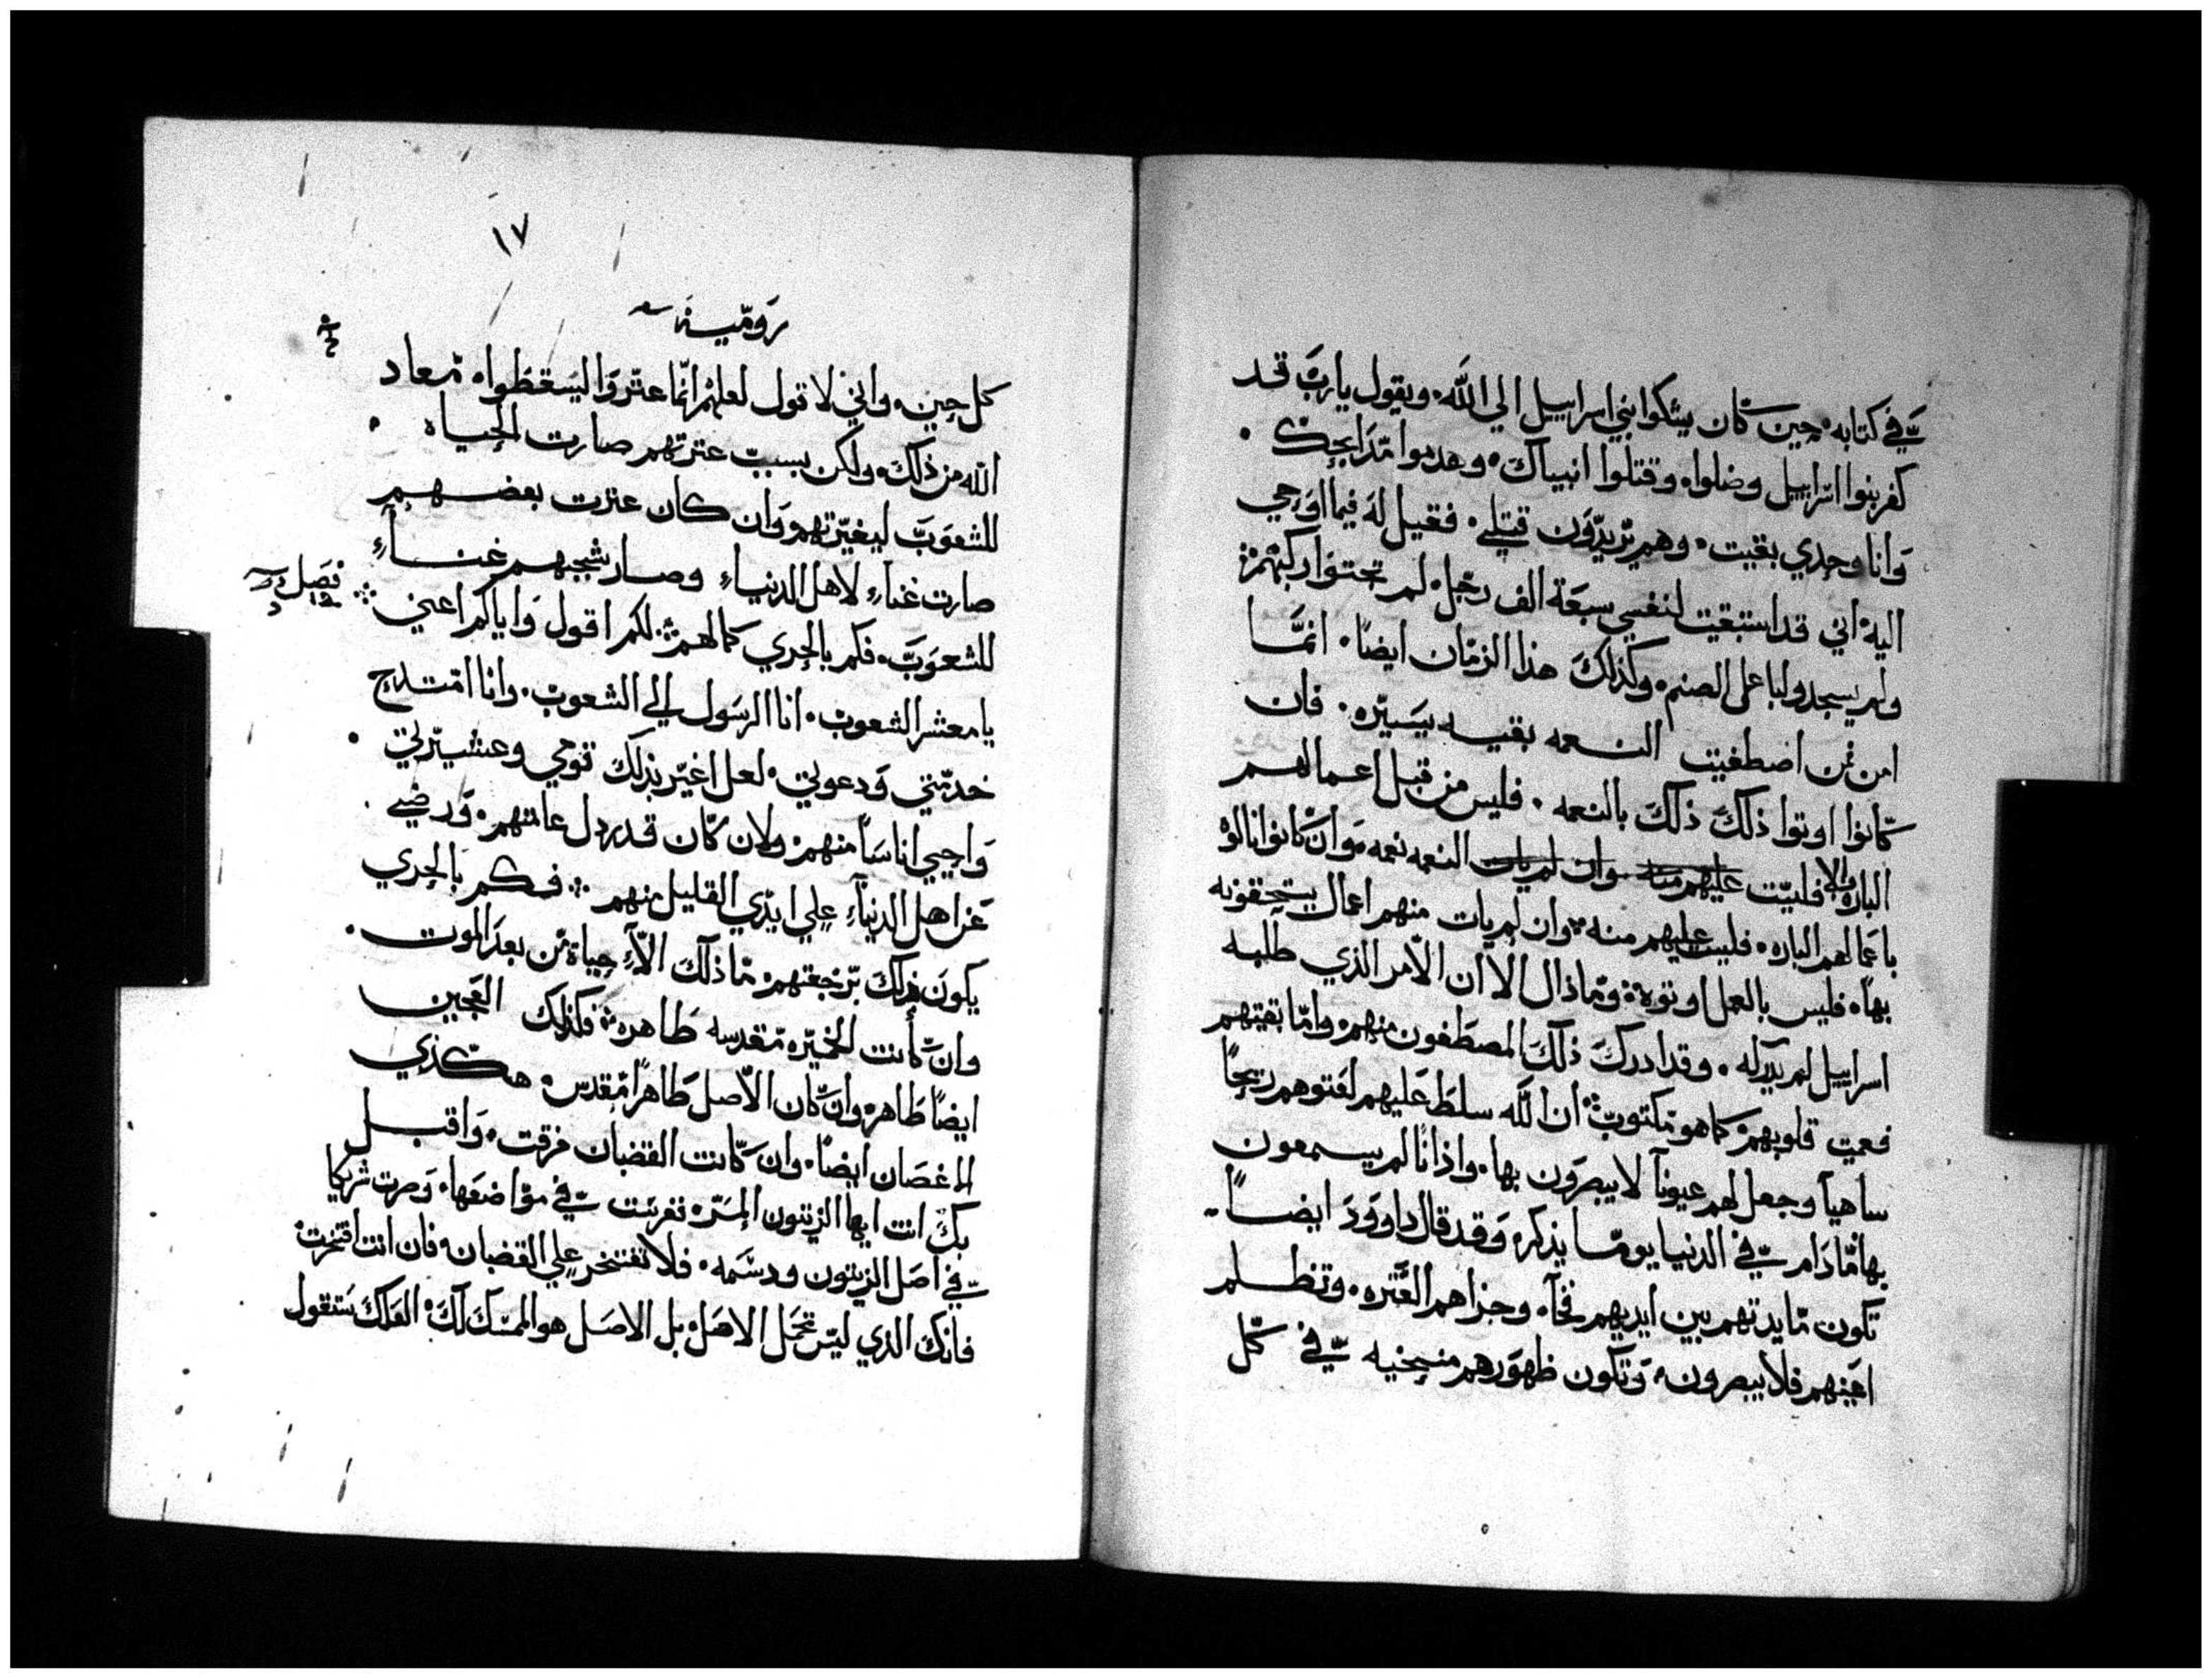 في كتابه حين كان يشكوا بني اسراييل الي الله. ويقول يا رب قد
كفر بنوا اسراييل وضلوا وقتلوا انبياك. وهدموا مذابحك.
وانا وحدي بقيت. وهم يريدون قتلي. فقيل له فيما اوحي
اليه اني قد استبقيت لنفسي سبعة الف رجل لم تجثوا ركبهم
ولم يسجدوا لباعل الصنم. وكذلك هذا الزمان ايضا. انما
امن من اضطفيت النعمه بقيه يسيره. فان
كانوا اوتوا ذلك ذلك بالنعمه. فليس من قبل اعمالهم
الباره والا فليت عليهم منه وان لم يات النعمه نعمه وان كانوا نالوه
باعمالهم الباره. فليت عليهم منه وان لم يات منهم اعمال يستحقونه
بها. فليس بالعمل اوتوه وما ذال الا ان الامر الذي طلبه
اسراييل لم يدركه. وقد ادرك ذلك المصطفون منهم واما بقيتهم
فعميت قلوبهم كما هو مكتوب ان الله سلط عليهم لعتوهم ريحا
ساهيا وجعل لهم عيونا لا يبصرون بها. واذانا لم يسمعون
بها ما دام في الدنيا يوما يذكره وقد قال داوود ايضا
تكون مايدتهم بين ايديهم فخا. وجزاهم العثره. وتظلم
اعينهم فلا يبصرون وتكون ظهورهم منحنيه في كل
١٧
رومية
كل حين. واني لاقول لعلهم انما عثروا ليسقطوا معاد
الله من ذلك. ولكن بسبب عثرتهم صارت الحياه.
للشعوب ليغيرتهم وان كان عثرت بعضهم
صارت غناء لاهل الدنيا وصار شجبهم غناء
للشعوب. فكم بالحري كمالهم لكم اقول واياكم اعني
فصل
يا معشر الشعوب. انا الرسول الي الشعوب. وانا امتدح
خدمتي ودعوتي. لعل اغير بذلك قومي وعشيرتي.
واحيي اناسا منهم ولان كان قد رذل عامتهم. ورضي
عن اهل الدنيا علي ايدي القليل منهم فكم بالحري
يكون ذلك برجعتهم ما ذلك الا حياة من بعد الموت.
وان كانت الخميره مقدسه طاهره فكذلك العجين
ايضا طاهر وان كان الاصل طاهرا مقدس هكذي
الاغصان ايضا. وان كانت القضبان فرقت. واقبل
بك انت ايها الزيتون المره تغربت في مواضعها. وصرت شريكا
في اصل الزيتون ودسمه. فلا تفتخر علي القضبان فان انت افتخرت
فانك الذي ليس تحمل الاصل بل الاصل هو الممسك لك العلك ستقول